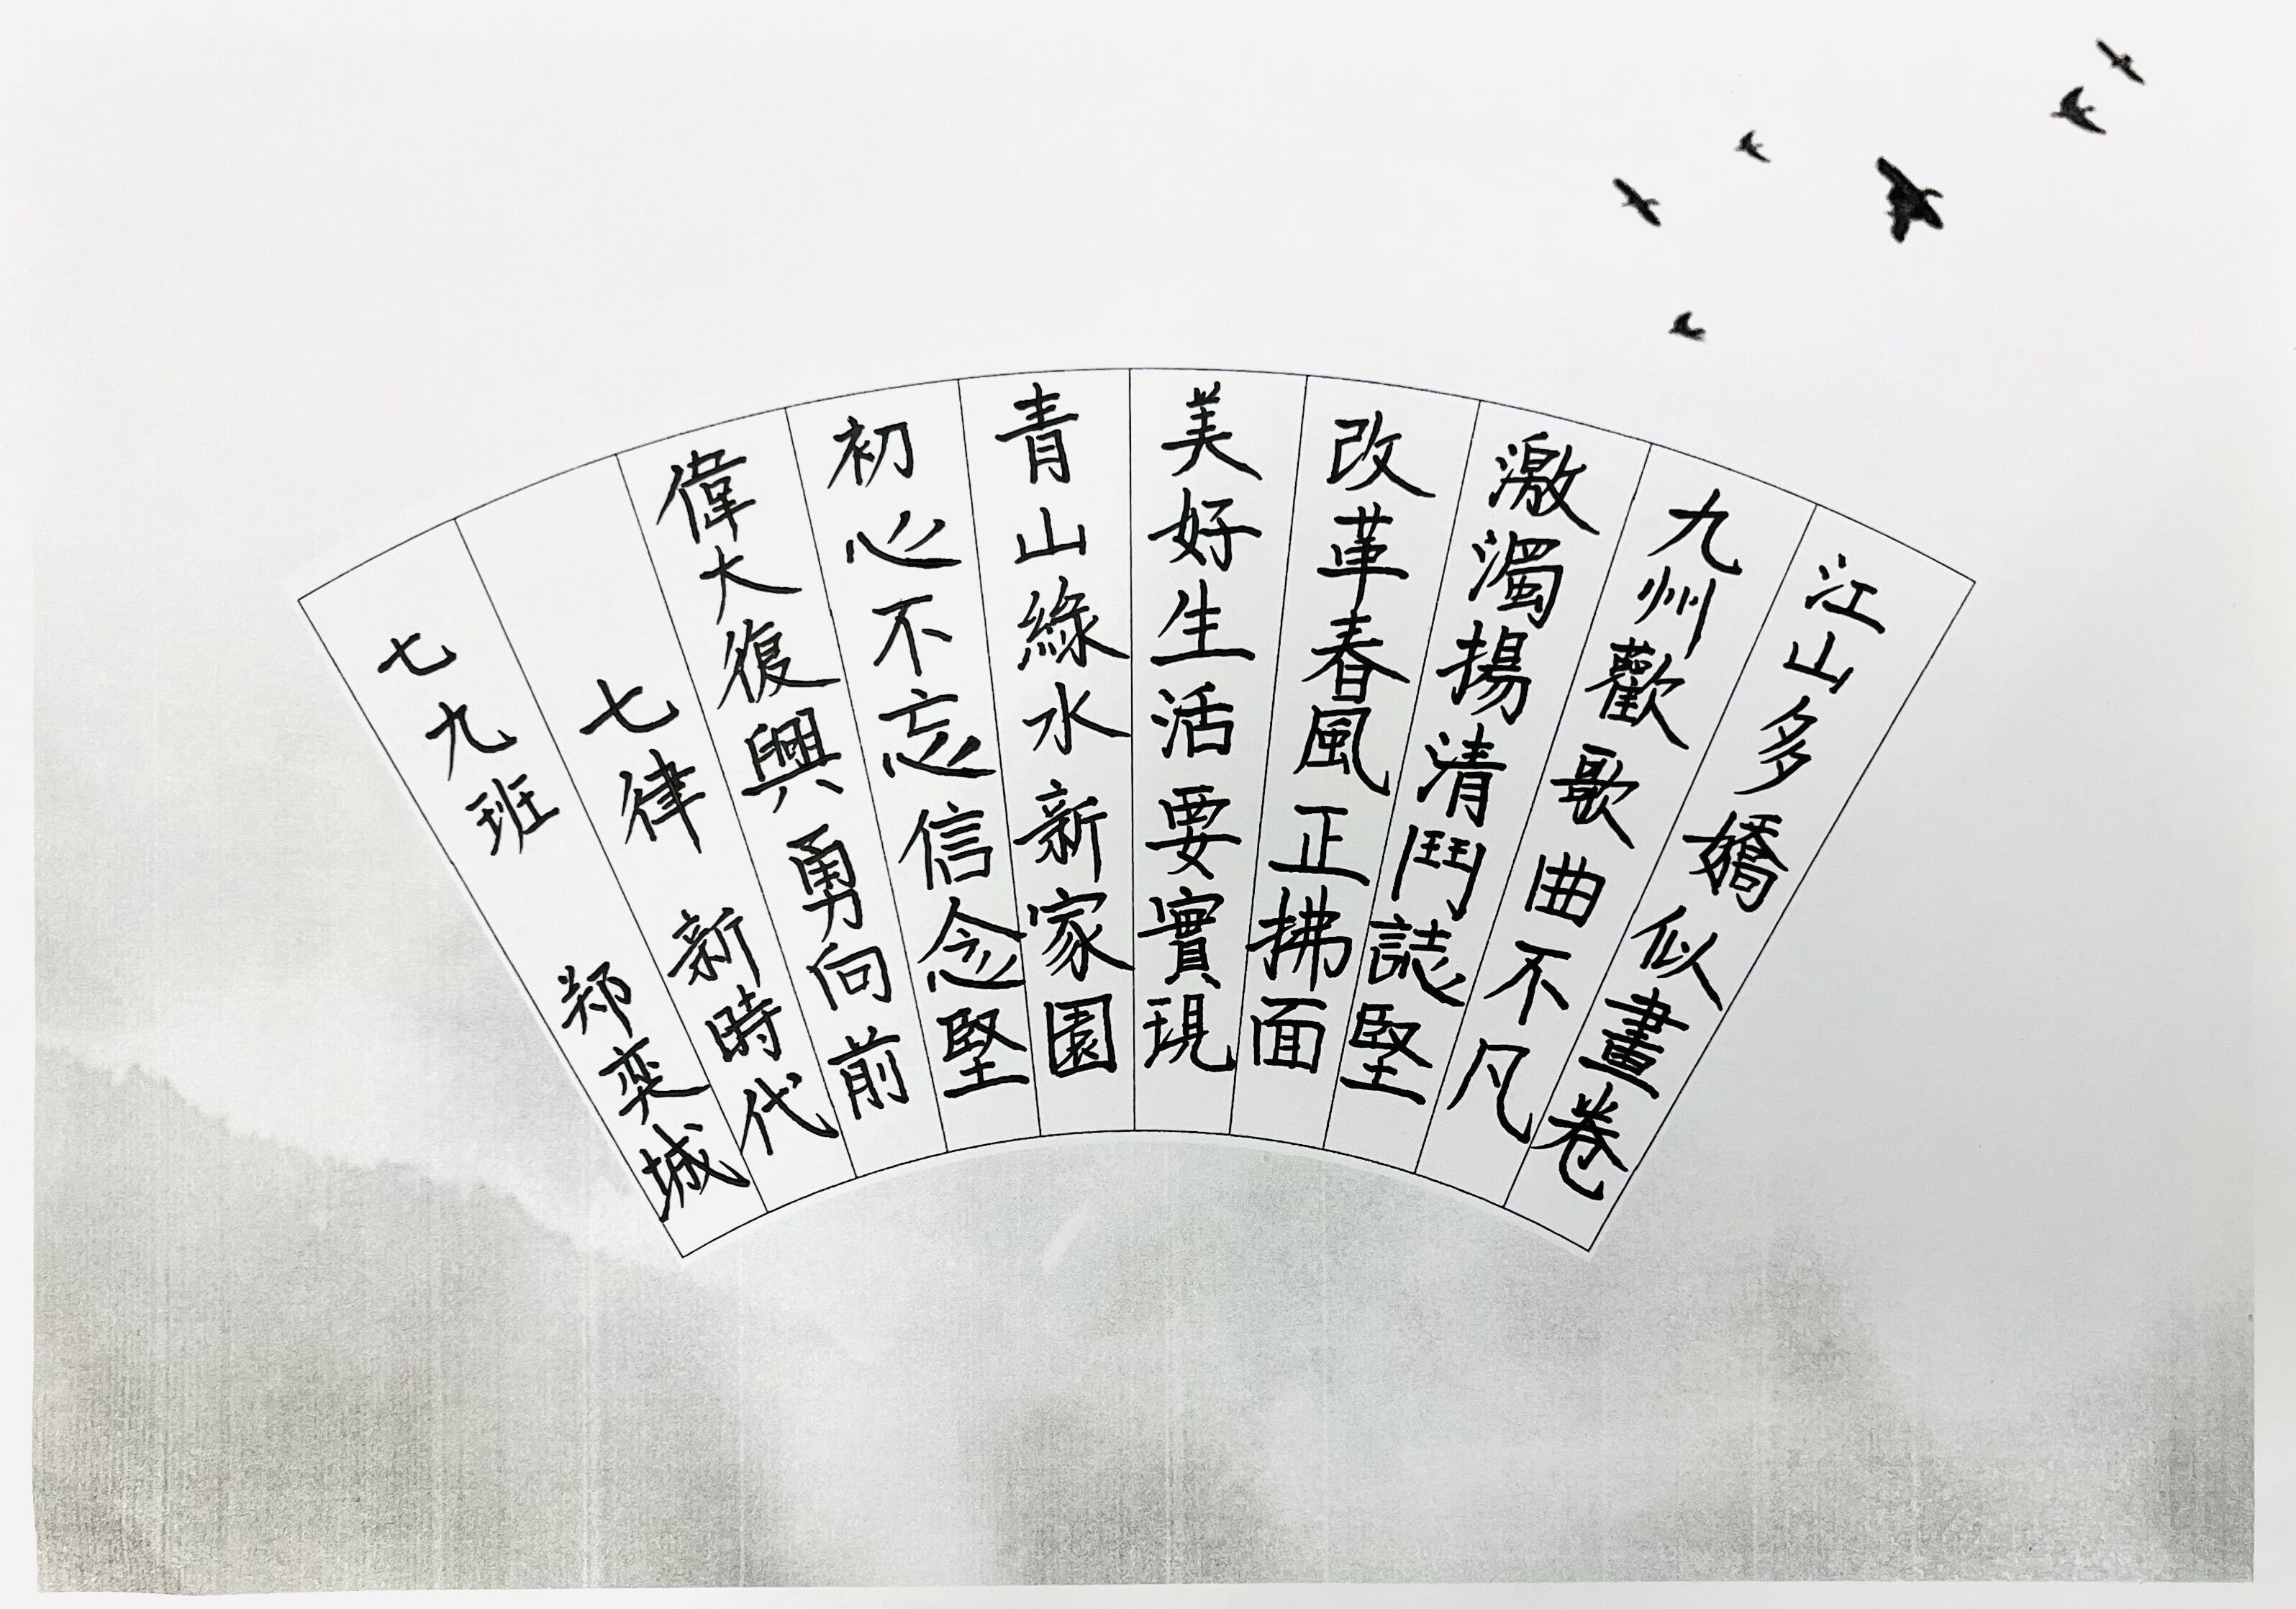 江山多嬌似畫卷
九州歡歌曲不凡
激濁揚清鬥誌堅
改革春風正拂面
美好生活要實現
青山綠水新家園
初心不忘信念堅
偉大復興勇向前
七律 新時代
七九班 郑奕城